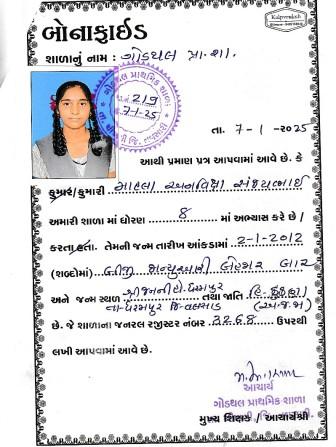 Kalpvruksh
બોનાફાઈડ
શાળાનું નામ : ગોડથલ પ્રા. શા.
ગોડથલ પ્રાથમિક શાળા
219
7-1-25
તા. 7-1-2025
આથી પ્રમાણ પત્ર આપવામાં આવે છે. કે
કુમાર/કુમારી માહલા અનવિક્ષા સંજયભાઈ
અમારી શાળા માં ધોરણ 8 માં અભ્યાસ કરે છે /
કરતા હતા. તેમની જન્મ તારીખ આંકડામાં 2-1-2012
(શબ્દોમાં) બીજી જાન્યુઆરી બેહજાર બાર
અને જન્મ સ્થળ તથા જાતિ હિ. કુંકણા
તા-ધરમપુર જિ-વલસાડ (અ.જ.જા)
છે. જે શાળાના જનરલ રજીસ્ટર નંબર 3268 ઉપરથી
લખી આપવામાં આવે છે.
આચાર્ય
ગોડથલ પ્રાથમિક શાળા
મુખ્ય શિક્ષક / આચાર્યશ્રી